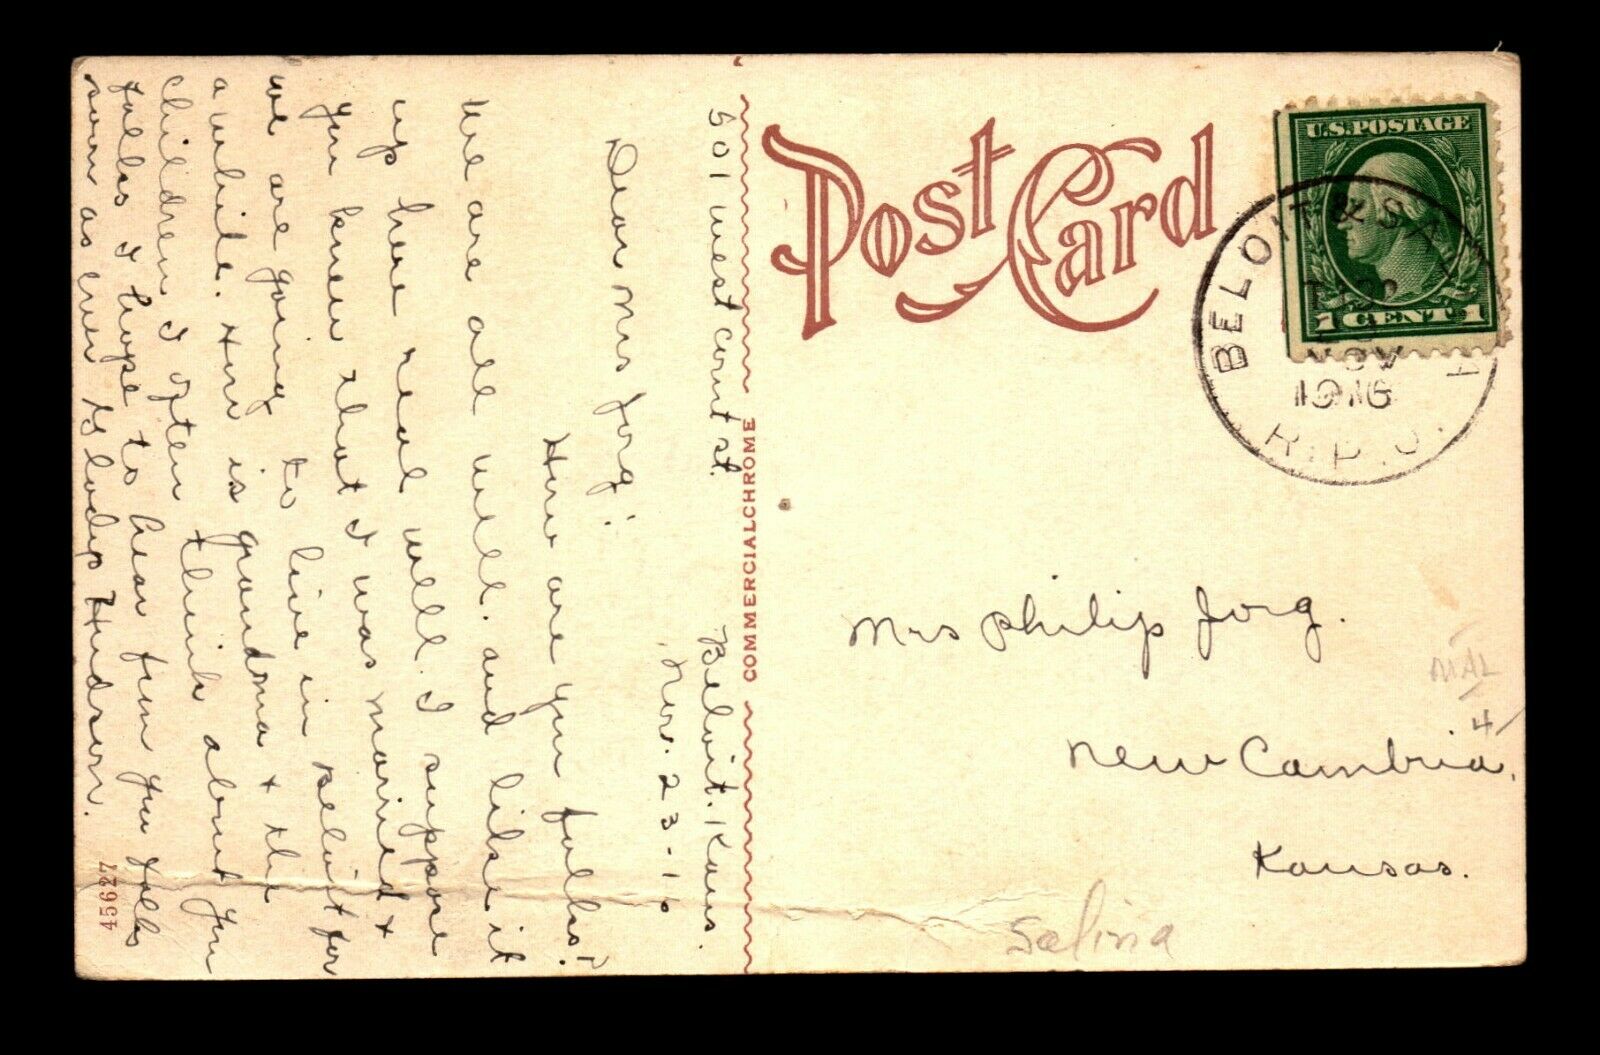 501 West Court St.
Beloit. Kans.
Nov. 23-16
Dear Mrs Jorg:
How are you folks?
We are all well. and like it
up here real well. I suppose
you knew that I was married &
we are going to live in Beloit for
a while. How is grandma & the
children I often think about you
folks I hope to hear from you folks
soon as ever
Hudson.
45627
COMMERCIALCHROME
Post Card
U.S. POSTAGE
1 CENT 1
BELOIT & SAL
NOV
1916
R.P.O.
Mrs Philip Jorg.
New Cambria,
Kansas.
Salina